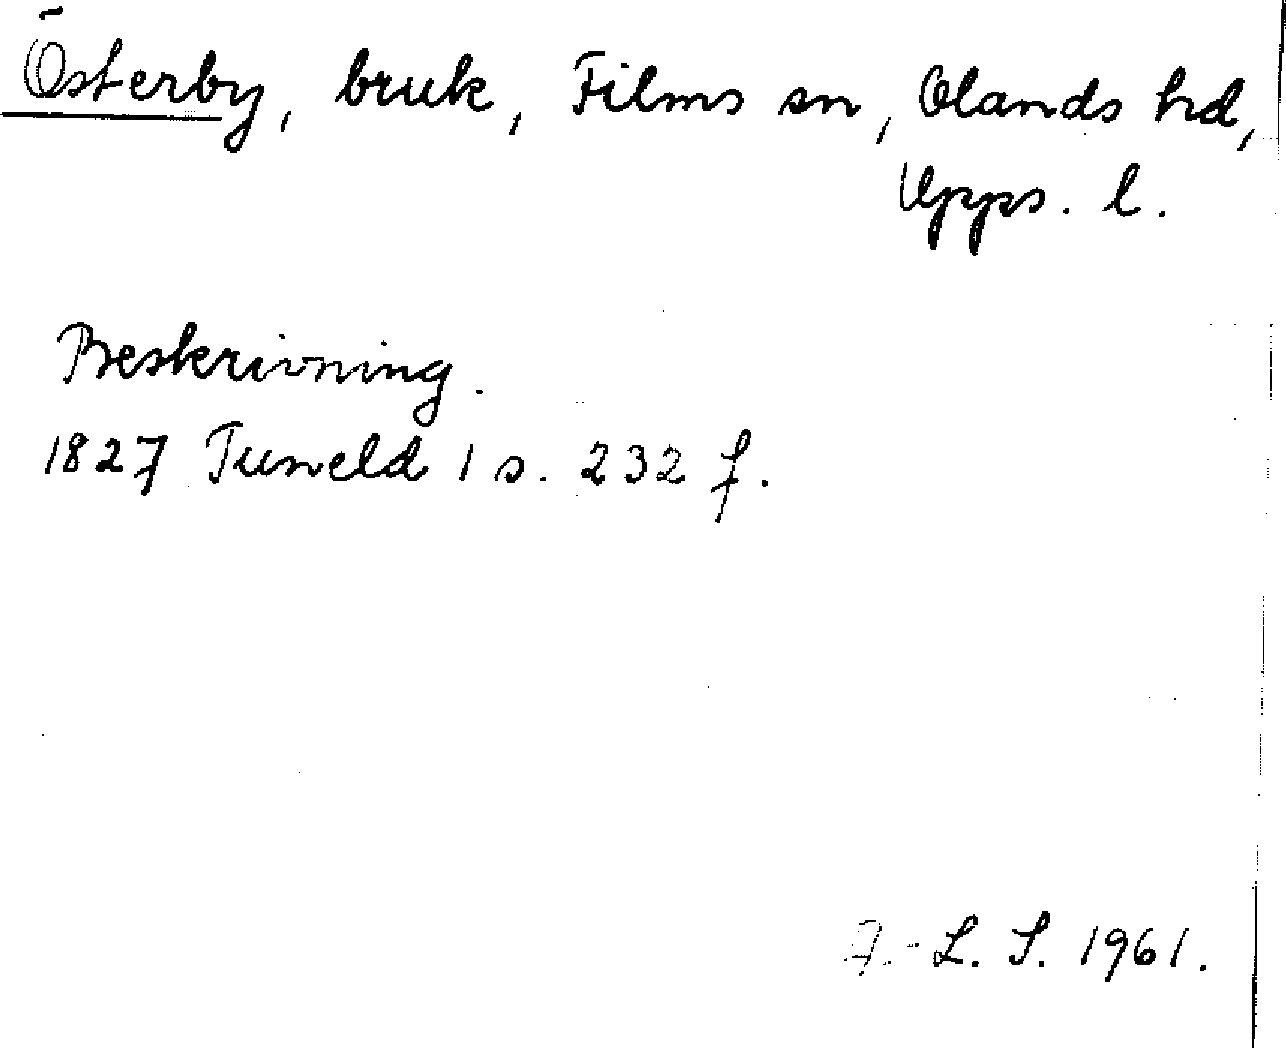 Österby, bruk, Films sn, Olands hd,
Upps. l.
Beskrivning.
1827 Tuneld 1 s. 232 f.
A.-L. S. 1961.